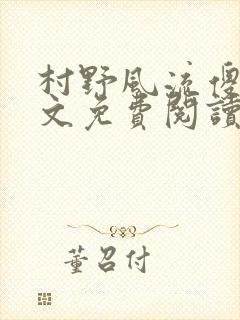 村野風流傻
文免費閱讀
董召付